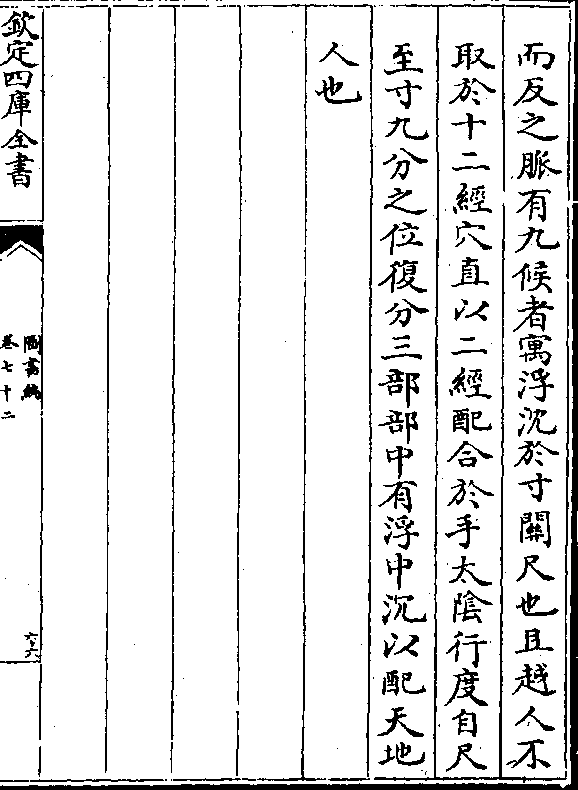 而反之脈有九候者寓浮沉於寸關尺也且越人不
取於十二經穴直以二經配合於手太陰行度自尺
至寸九分之位復分三部部中有浮中沉以配天地
人也
欽定四庫全書
圖書編
卷七十二
六六